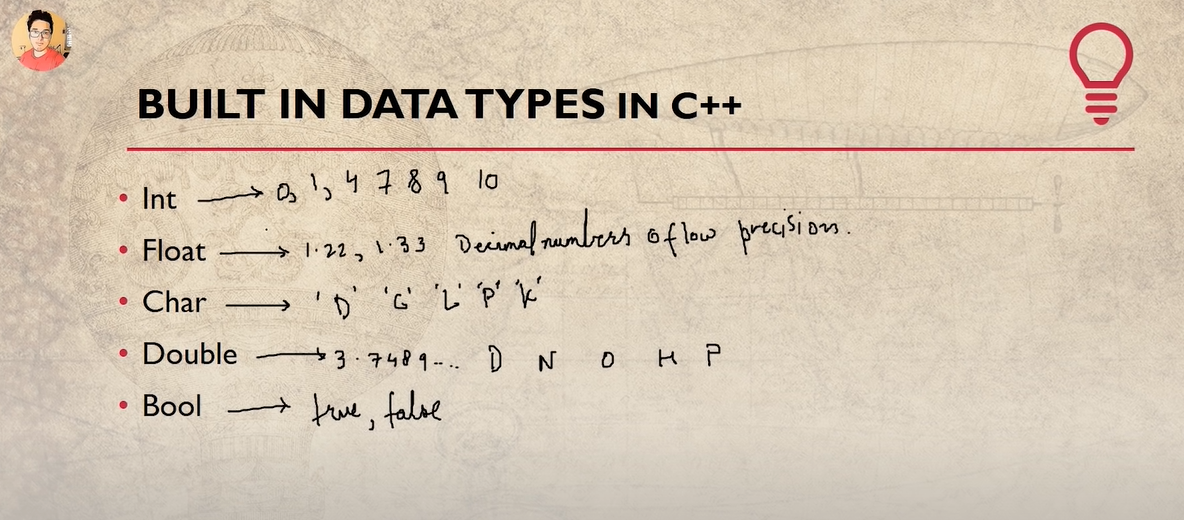 BUILT IN DATA TYPES IN C++
• Int → 0, 1, 4 7 8 9 10
• Float → 1.22, 1.33 Decimal numbers of low precision.
• Char → 'D' 'G' 'L' 'P' 'K'
• Double → 3.7489..... D N O H P
• Bool → true, false